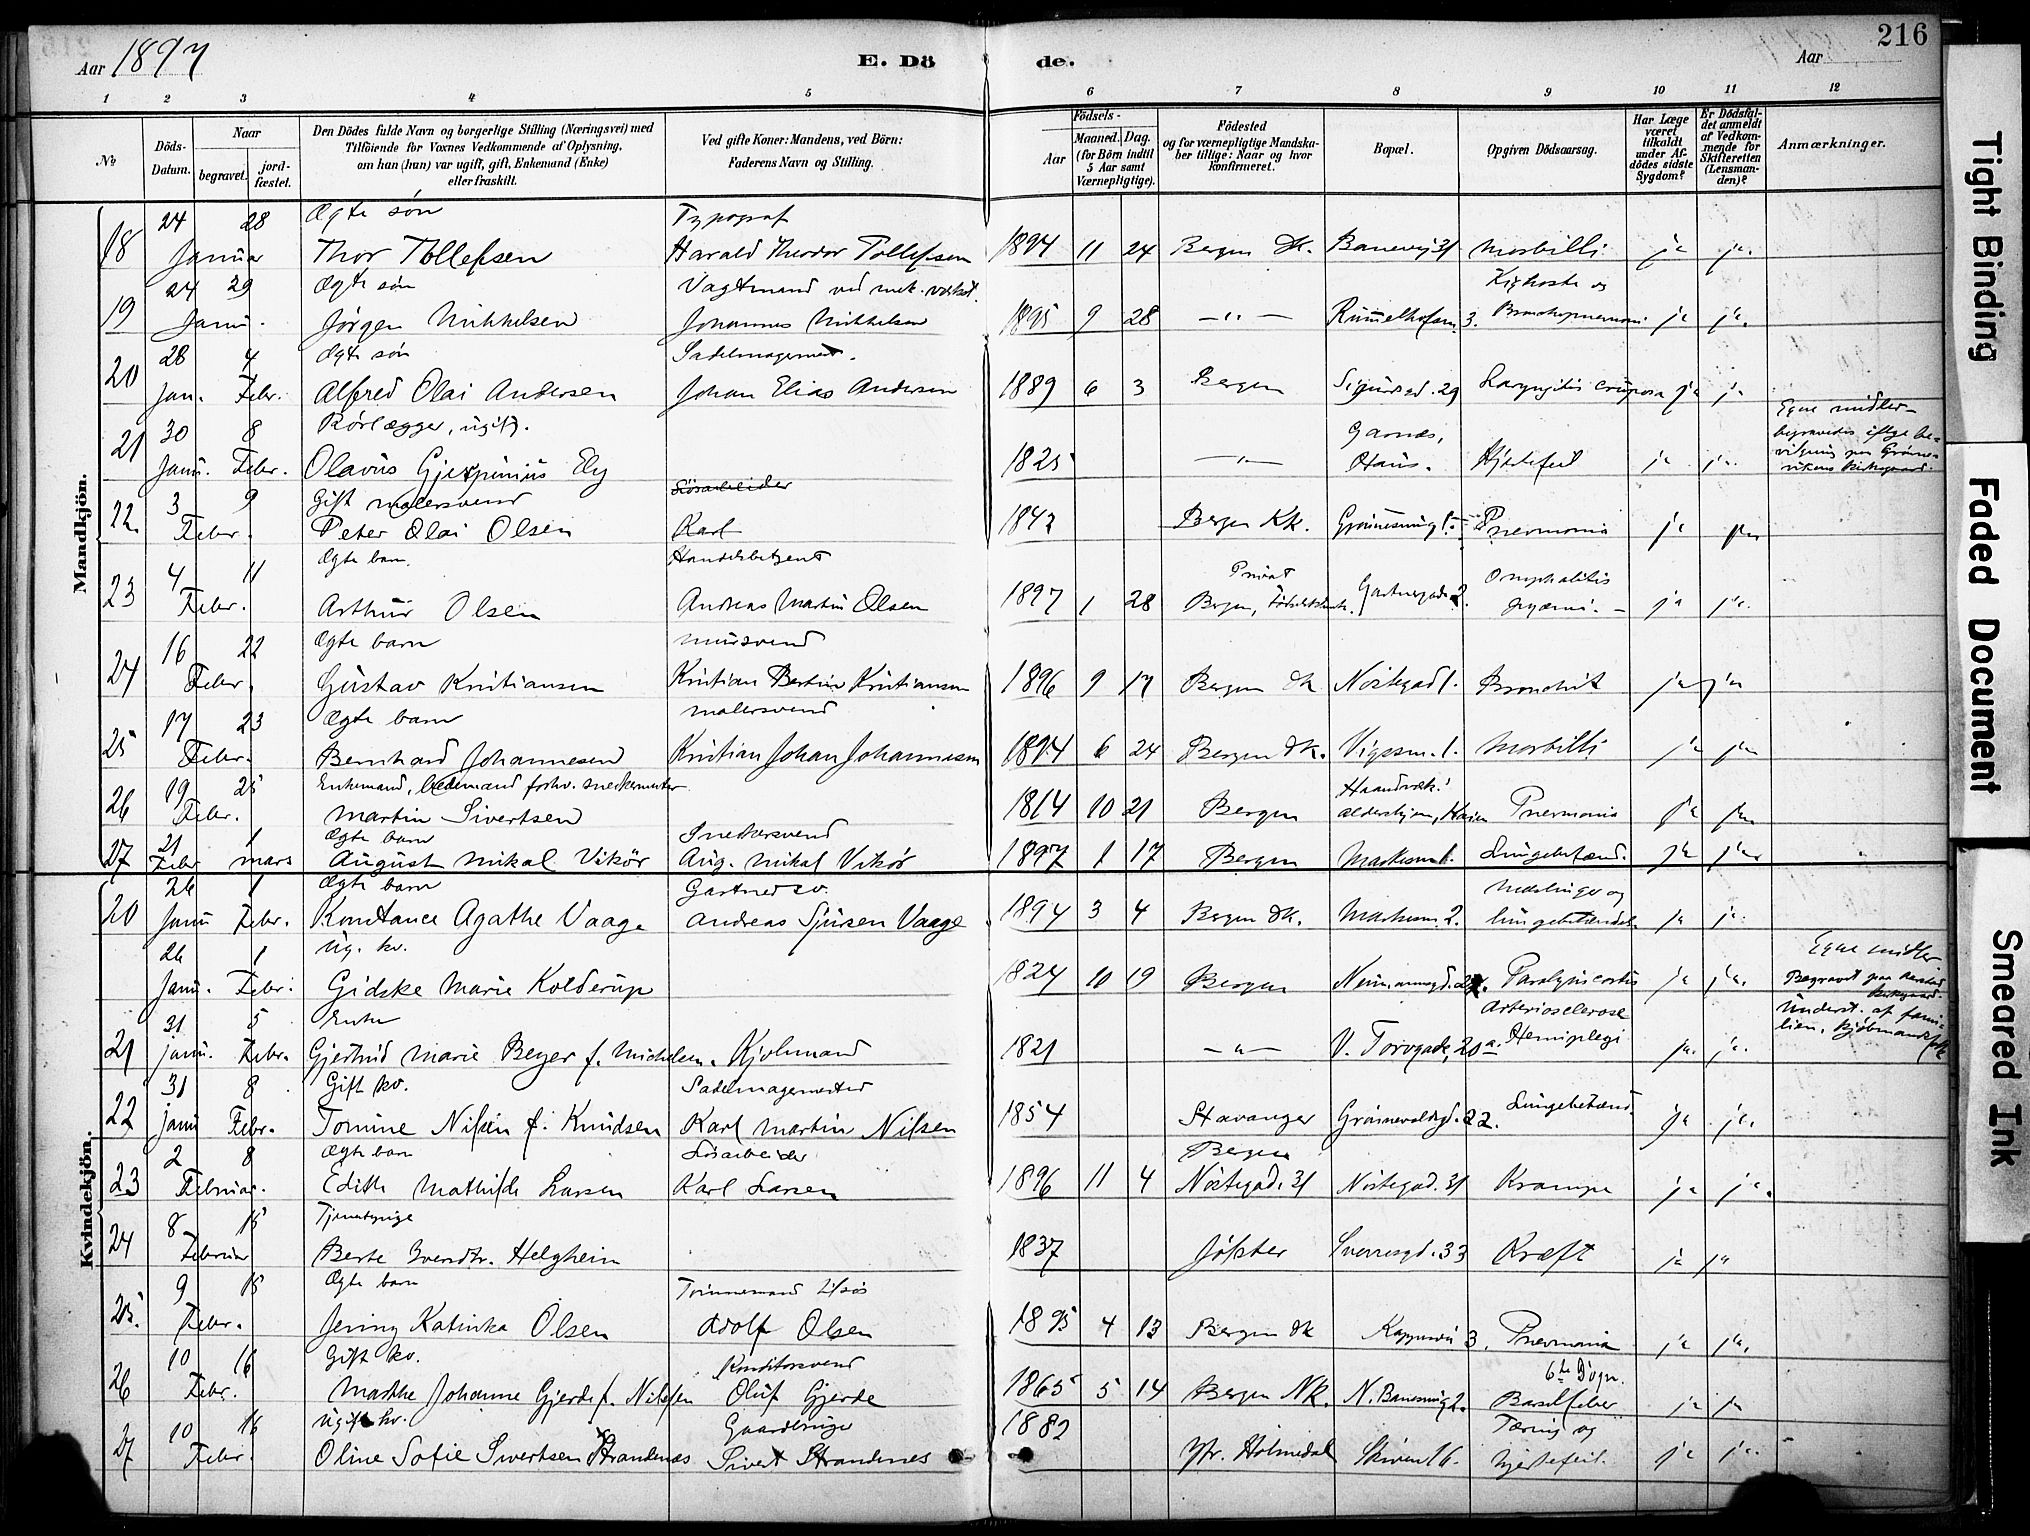 Aar 1897
E. Dö de.
Aar
216
1 2 3 4 5 6 7 8 9 10 11 12
No
Döds-Datum.
Naar
begravet.
jord-fæstet.
Den Dödes fulde Navn og borgerlige Stilling (Næringsvei) med
Tilföiende for Voxnes Vedkommende af Oplysning,
om han (hun) var ugift, gift, Enkemand (Enke)
eller fraskilt.
Ved gifte Koner: Mandens, ved Börn:
Faderens Navn og Stilling.
Födsels-
Aar
Maaned. Dag.
(for Börn indtil
5 Aar samt
Værnepligtige).
Födested
og for værnepligtige Mandska-
ber tillige: Naar og hvor
konfirmeret.
Bopæl.
Opgiven Dödsaarsag.
Har Læge
været
tilkaldt
under Af-
dödes sidste
Sygdom?
Er Dödsfal-
det anmeldt
af Vedkom-
mende for
Skifteretten
(Lensman-
den)?
Anmærkninger.
Mandkjön.
24 28 Ægte søn Typograf
18 Januar Thor Tollefsen Harald Theodor Tollefsen 1894 11 24 Bergen Dk. Banevej 31 Morbilli ja ja.
24 29 Ægte søn Vagtmand ved mek. Kighoste og
19 Janu. Jørgen Mikkelsen Johannes Mikkelsen 1895 9 28 —"— 3. Bronchopneumoni ja ja.
28 4 Ægte søn
20 Jan. Febr. Alfred Olai Andersen Johan Elias Andersen 1889 6 3 Bergen Sigurdsgd. 29 Laryngitis crouposa ja ja
30 8 Rørlægger, ugift. Garnes, Egne midler
21 Janu. Febr. Olavus Ely 1825 —"— Haus. Hjertefeil ja ja.
3 9 Gift malersvend Løsarbeider
22 Febr. Peter Olai Olsen Karl 1843 Bergen Kk. Pneumonia ja ja
4 11 Ægte barn. Handelsbetjent Privat Omphalitis
23 Febr. Arthur Olsen Andreas Martin Olsen 1897 1 28 Bergen, 2. pyæmi. ja ja.
16 22 Ægte barn mursvend
24 Febr. Gustav Kristiansen Kristian Bertin Kristiansen 1896 9 17 Bergen Dk Nøstegad 1. Bronchit ja ja
17 23 Ægte barn malersvend
25 Febr. Bernhard Johannesen Kristian Johan Johannesen 1894 6 24 Bergen Dk. 1. Morbilli ja ja
19 25 Enkemand, bedemand forhv. snedkermester Haandværk.
26 Febr. Martin Sivertsen 1814 10 21 Bergen alderhjem, Pneumonia ja ja
21 1 Ægte barn Snekkersvend
27 Febr mars August Mikal Vikör Aug. Mikal Vikör 1897 1 17 Bergen Lungebetænd. ja ja
Kvindekjön.
26 1 Ægte barn Gartnersv. Meslinger og
20 Janu Febr. Konstance Agathe Vaage Andreas Sjursen Vaage 1894 3 4 Bergen Dk. 2. lungebetændels. ja ja
26 1 Ug. kv. Egne midler
Janu. Febr. Gidske Marie Kolderup 1824 10 19 Bergen Paralysis cordis ja ja.
31 5 Enke Arteriosclerose Underst. af fami-
21 janu. Febr. Gjertrud Marie Beyer f. Michelsen. Kjøbmand 1821 —"— V. Torvgade, 20a Hemiplegi ja. ja. lien.
31 8 Gift kv. Sadelmagermester
22 janu Febr. Tomine Nilsen f. Knudsen Karl Martin Nilsen 1854 Stavanger 22. Lungebetænd. ja ja.
2 8 Ægte barn Løsarbeider Bergen
23 Februar. Edith Mathilde Larsen Karl Larsen 1896 11 4 Nøstegad. 31 Nøstegad. 31 Krampe ja ja.
8 15 Tjenestepige
24 Februar Berte Helgheim 1837 Jølster Sverresgd. 33 Kræft ja ja
9 15 Ægte barn Tømmermand
25. Febr. Jenny Katinka Olsen Adolf Olsen 1895 4 13 Bergen Dk 3. Pneumonia ja ja.
10 16 Gift kv. Konditorsvend 6te Døgn.
26 Febr. Marthe Johanne Gjerde f. Nilsen Oluf Gjerde 1865 5 14 Bergen Nk. Barselfeber ja ja
10 16 Ugift kv. Gaardbruger Tæring og
27 Febr. Oline Sofie Sivertsen Strandenæs Sivert Strandenes 1882 Ytr. Holmedal Skiven 16. hjertefeil. ja ja.
Tight Binding
Faded Document
Smeared Ink